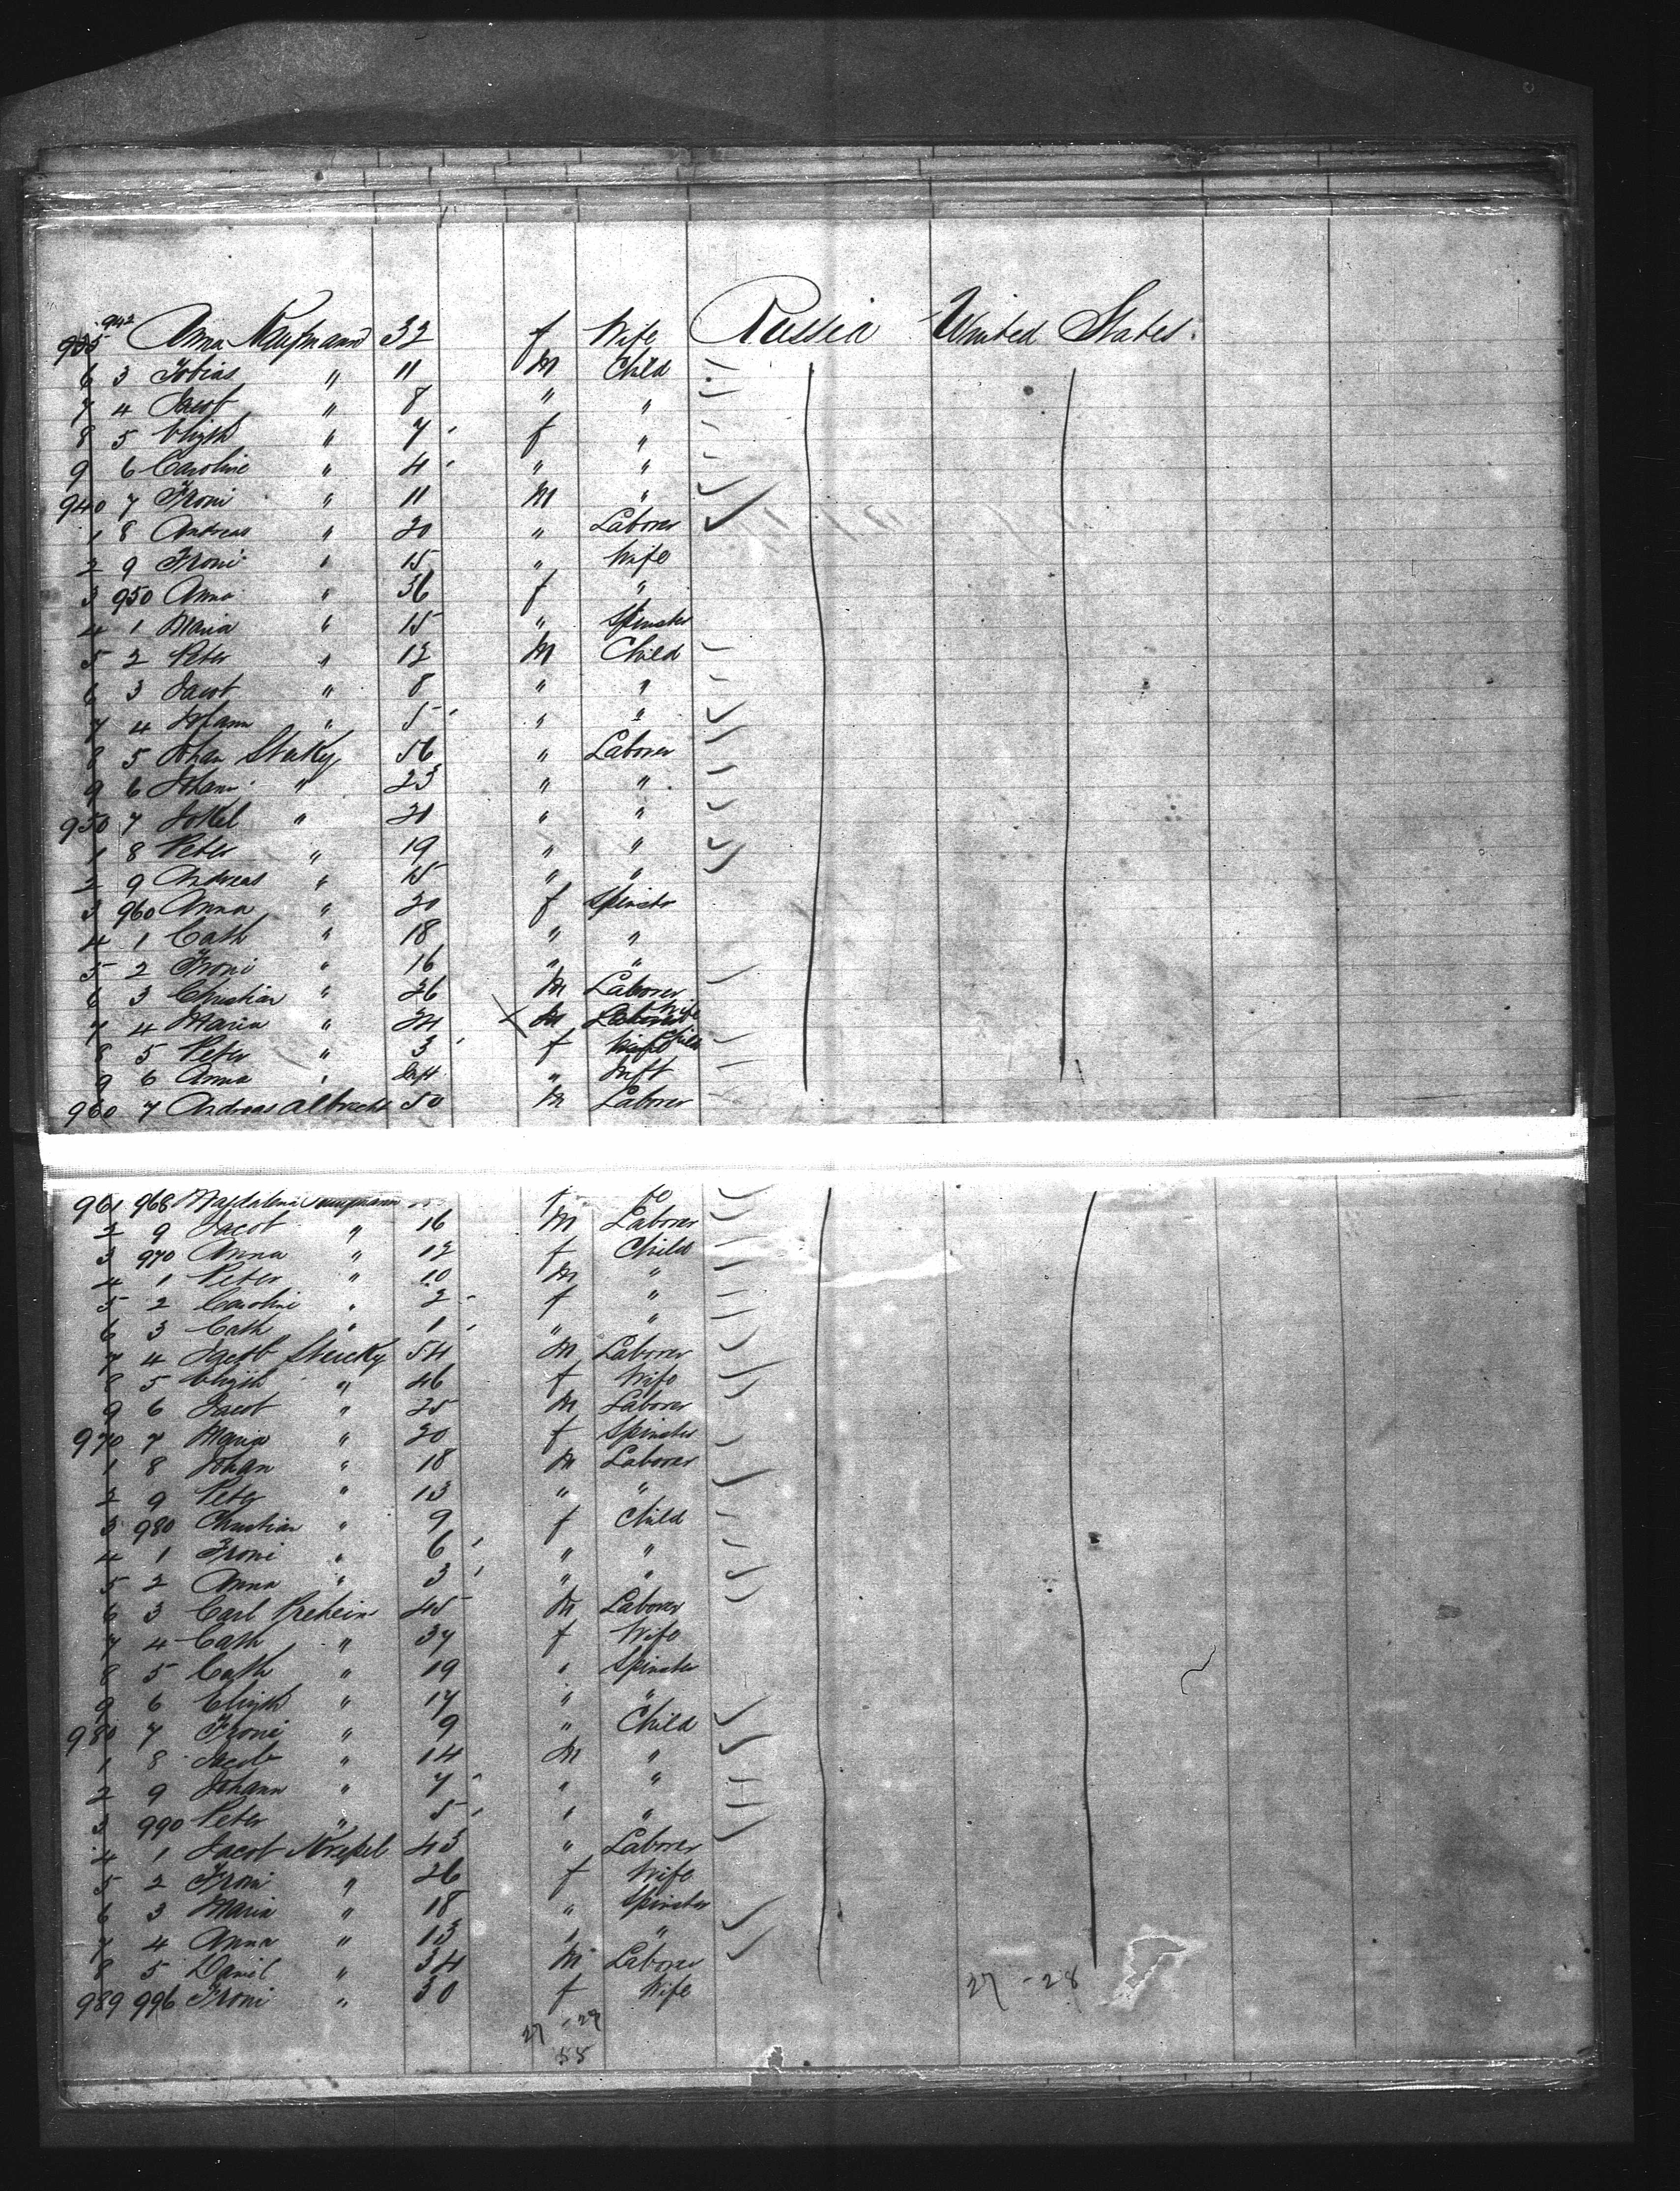 935 942 Anna Kaufmann 32 f Wife Russia United States.
6 3 Tobias " 11 M Child
7 4 Jacob " 8 " "
8 5 Elizth " 7 f "
9 6 Caroline " 4 " "
940 7 Froni " 11 M "
1 8 Andreas " 20 " Laborer
2 9 Froni " 15 " Wife
3 950 Anna " 36 f "
4 1 Maria " 15 " Spinster
5 2 Peter " 12 M Child
6 3 Jacob " 8 " "
7 4 Johann " 5 " "
8 5 Johan Stuky 56 " Laborer
9 6 Johann " 23 " "
950 7 Jokel " 21 " "
1 8 Peter " 19 " "
2 9 Andreas " 15 " "
3 960 Anna " 20 f Spinster
4 1 Cath " 18 " "
5 2 Froni " 16 " "
6 3 Christian " 26 M Laborer
7 4 Maria " 24 X M Laborer Wife
8 5 Peter " 3 f Wife Child
9 6 Anna " Inft " Inft
960 7 Andreas Albrecht 50 M Laborer
961 968 Magdalena f
2 9 Jacob " 16 M Laborer
3 970 Anna " 12 f Child
4 1 Peter " 10 M "
5 2 Caroline " 2 f "
6 3 Cath " 1 " "
7 4 Jacob Stucky 54 M Laborer
8 5 Elizth " 46 f Wife
9 6 Jacob " 25 M Laborer
970 7 Maria " 20 f Spinster
1 8 Johan " 18 M Laborer
2 9 Peter " 13 " "
3 980 Christian " 9 f Child
4 1 Froni " 6 " "
5 2 Anna " 3 " "
6 3 Carl 45 M Laborer
7 4 Cath " 37 f Wife
8 5 Cath " 19 " Spinster
9 6 Elizth " 17 " "
980 7 Froni " 9 " Child
1 8 Jacob " 14 M "
2 9 Johann " 7 " "
3 990 Peter " 5 " "
4 1 Jacob 43 " Laborer
5 2 Froni " 26 f Wife
6 3 Maria " 18 " Spinster
7 4 Anna " 13 " "
8 5 Daniel " 34 M Laborer
989 996 Froni " 30 f Wife
27 - 28
27 - 28
55